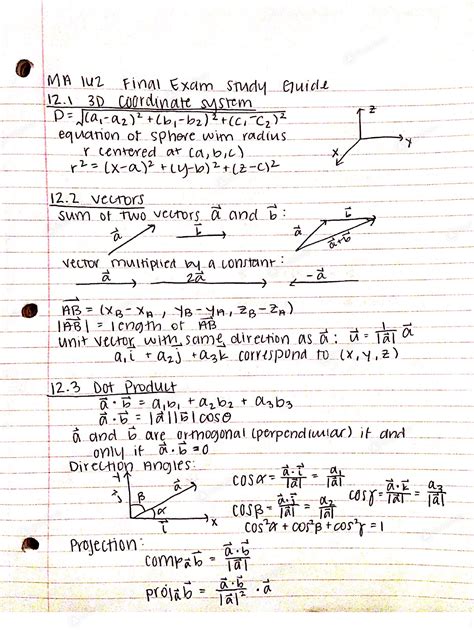 MA 142 Final Exam Study Guide
12.1 3D Coordinate System
D = √(a₁-a₂)² + (b₁-b₂)² + (c₁-c₂)²
z
y
x
equation of sphere with radius
r centered at (a,b,c)
r² = (x-a)² + (y-b)² + (z-c)²
12.2 vectors
sum of two vectors a⃗ and b⃗ :
a⃗ b⃗ a⃗ b⃗ a⃗+b⃗
vector multiplied by a constant:
a⃗ 2a⃗ -a⃗
AB⃗ = (x_B - x_A , y_B - y_A, z_B - z_A)
|AB⃗| = length of AB⃗
unit vector with same direction as a⃗ : u⃗ = 1/|a⃗| a⃗
a₁i + a₂j + a₃k correspond to (x, y, z)
12.3 Dot Product
a⃗ · b⃗ = a₁b₁ + a₂b₂ + a₃b₃
a⃗ · b⃗ = |a⃗||b⃗|cosθ
a⃗ and b⃗ are orthogonal (perpendicular) if and
only if a⃗ · b⃗ = 0
Direction Angles:
y j⃗ β a⃗ α i⃗ x
cosα = a⃗·i⃗/|a⃗| = a₁/|a⃗|
cosβ = a⃗·j⃗/|a⃗| = a₂/|a⃗| cosγ = a⃗·k⃗/|a⃗| = a₃/|a⃗|
cos²α + cos²β + cos²γ = 1
Projection:
comp_a⃗ b⃗ = a⃗·b⃗/|a⃗|
proj_a⃗ b⃗ = a⃗·b⃗/|a⃗|² · a⃗